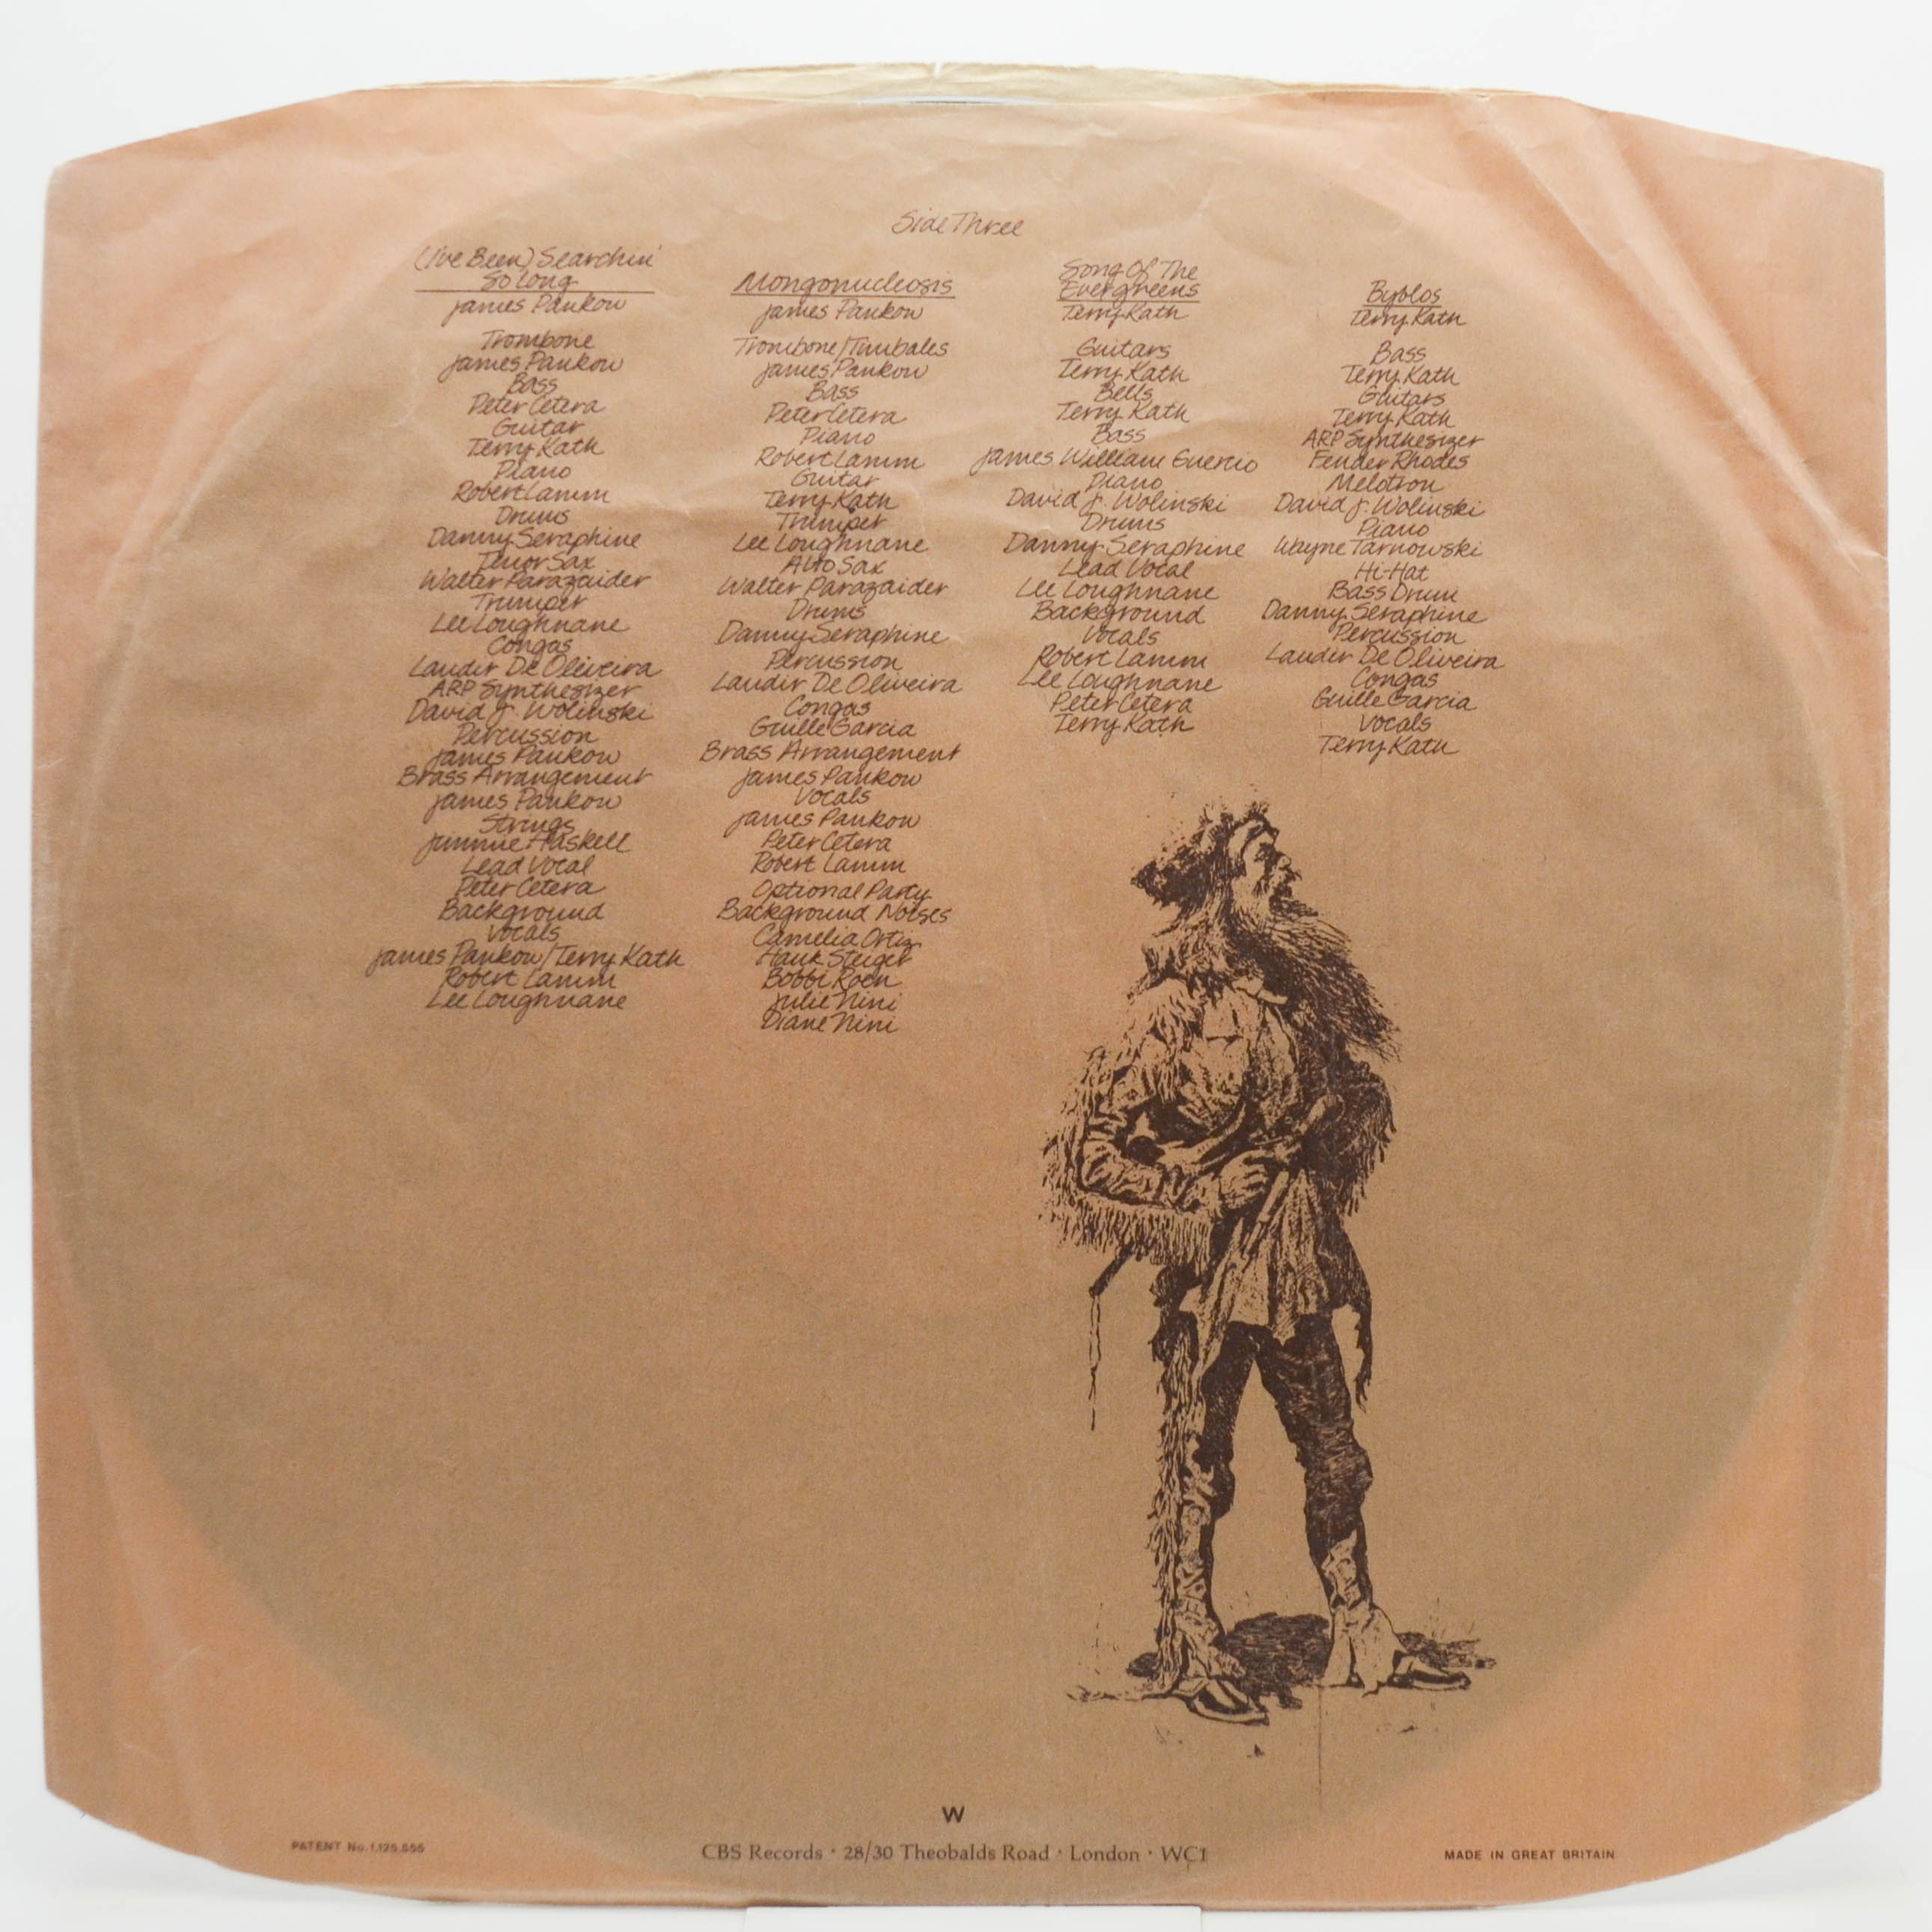 Side Three
(I've Been) Searchin'
So Long
James Pankow
Trombone
James Pankow
Bass
Peter Cetera
Guitar
Terry Kath
Piano
Robert Lamm
Drums
Danny Seraphine
Tenor Sax
Walter Parazaider
Trumpet
Lee Loughnane
Congas
Laudir De Oliveira
ARP Synthesizer
David J. Wolinski
Percussion
James Pankow
Brass Arrangement
James Pankow
Strings
Jimmie Haskell
Lead Vocal
Peter Cetera
Background
Vocals
James Pankow/Terry Kath
Robert Lamm
Lee Loughnane
Mongonucleosis
James Pankow
Trombone/Timbales
James Pankow
Bass
Peter Cetera
Piano
Robert Lamm
Guitar
Terry Kath
Trumpet
Lee Loughnane
Alto Sax
Walter Parazaider
Drums
Danny Seraphine
Percussion
Laudir De Oliveira
Congas
Guille Garcia
Brass Arrangement
James Pankow
Vocals
James Pankow
Peter Cetera
Robert Lamm
Optional Party
Background Noises
Camelia Ortiz
Hank Steiger
Bobbi Roen
Julie Nini
Diane Nini
Song Of The
Evergreens
Terry Kath
Guitars
Terry Kath
Bells
Terry Kath
Bass
James William Guercio
Piano
David J. Wolinski
Drums
Danny Seraphine
Lead Vocal
Lee Loughnane
Background
Vocals
Robert Lamm
Lee Loughnane
Peter Cetera
Terry Kath
Byblos
Terry Kath
Bass
Terry Kath
Guitars
Terry Kath
ARP Synthesizer
Fender Rhodes
Melotron
David J. Wolinski
Piano
Wayne Tarnowski
Hi-Hat
Bass Drum
Danny Seraphine
Percussion
Laudir De Oliveira
Congas
Guille Garcia
Vocals
Terry Kath
W
PATENT No. 1,125,555
CBS Records · 28/30 Theobalds Road · London · WC1
MADE IN GREAT BRITAIN